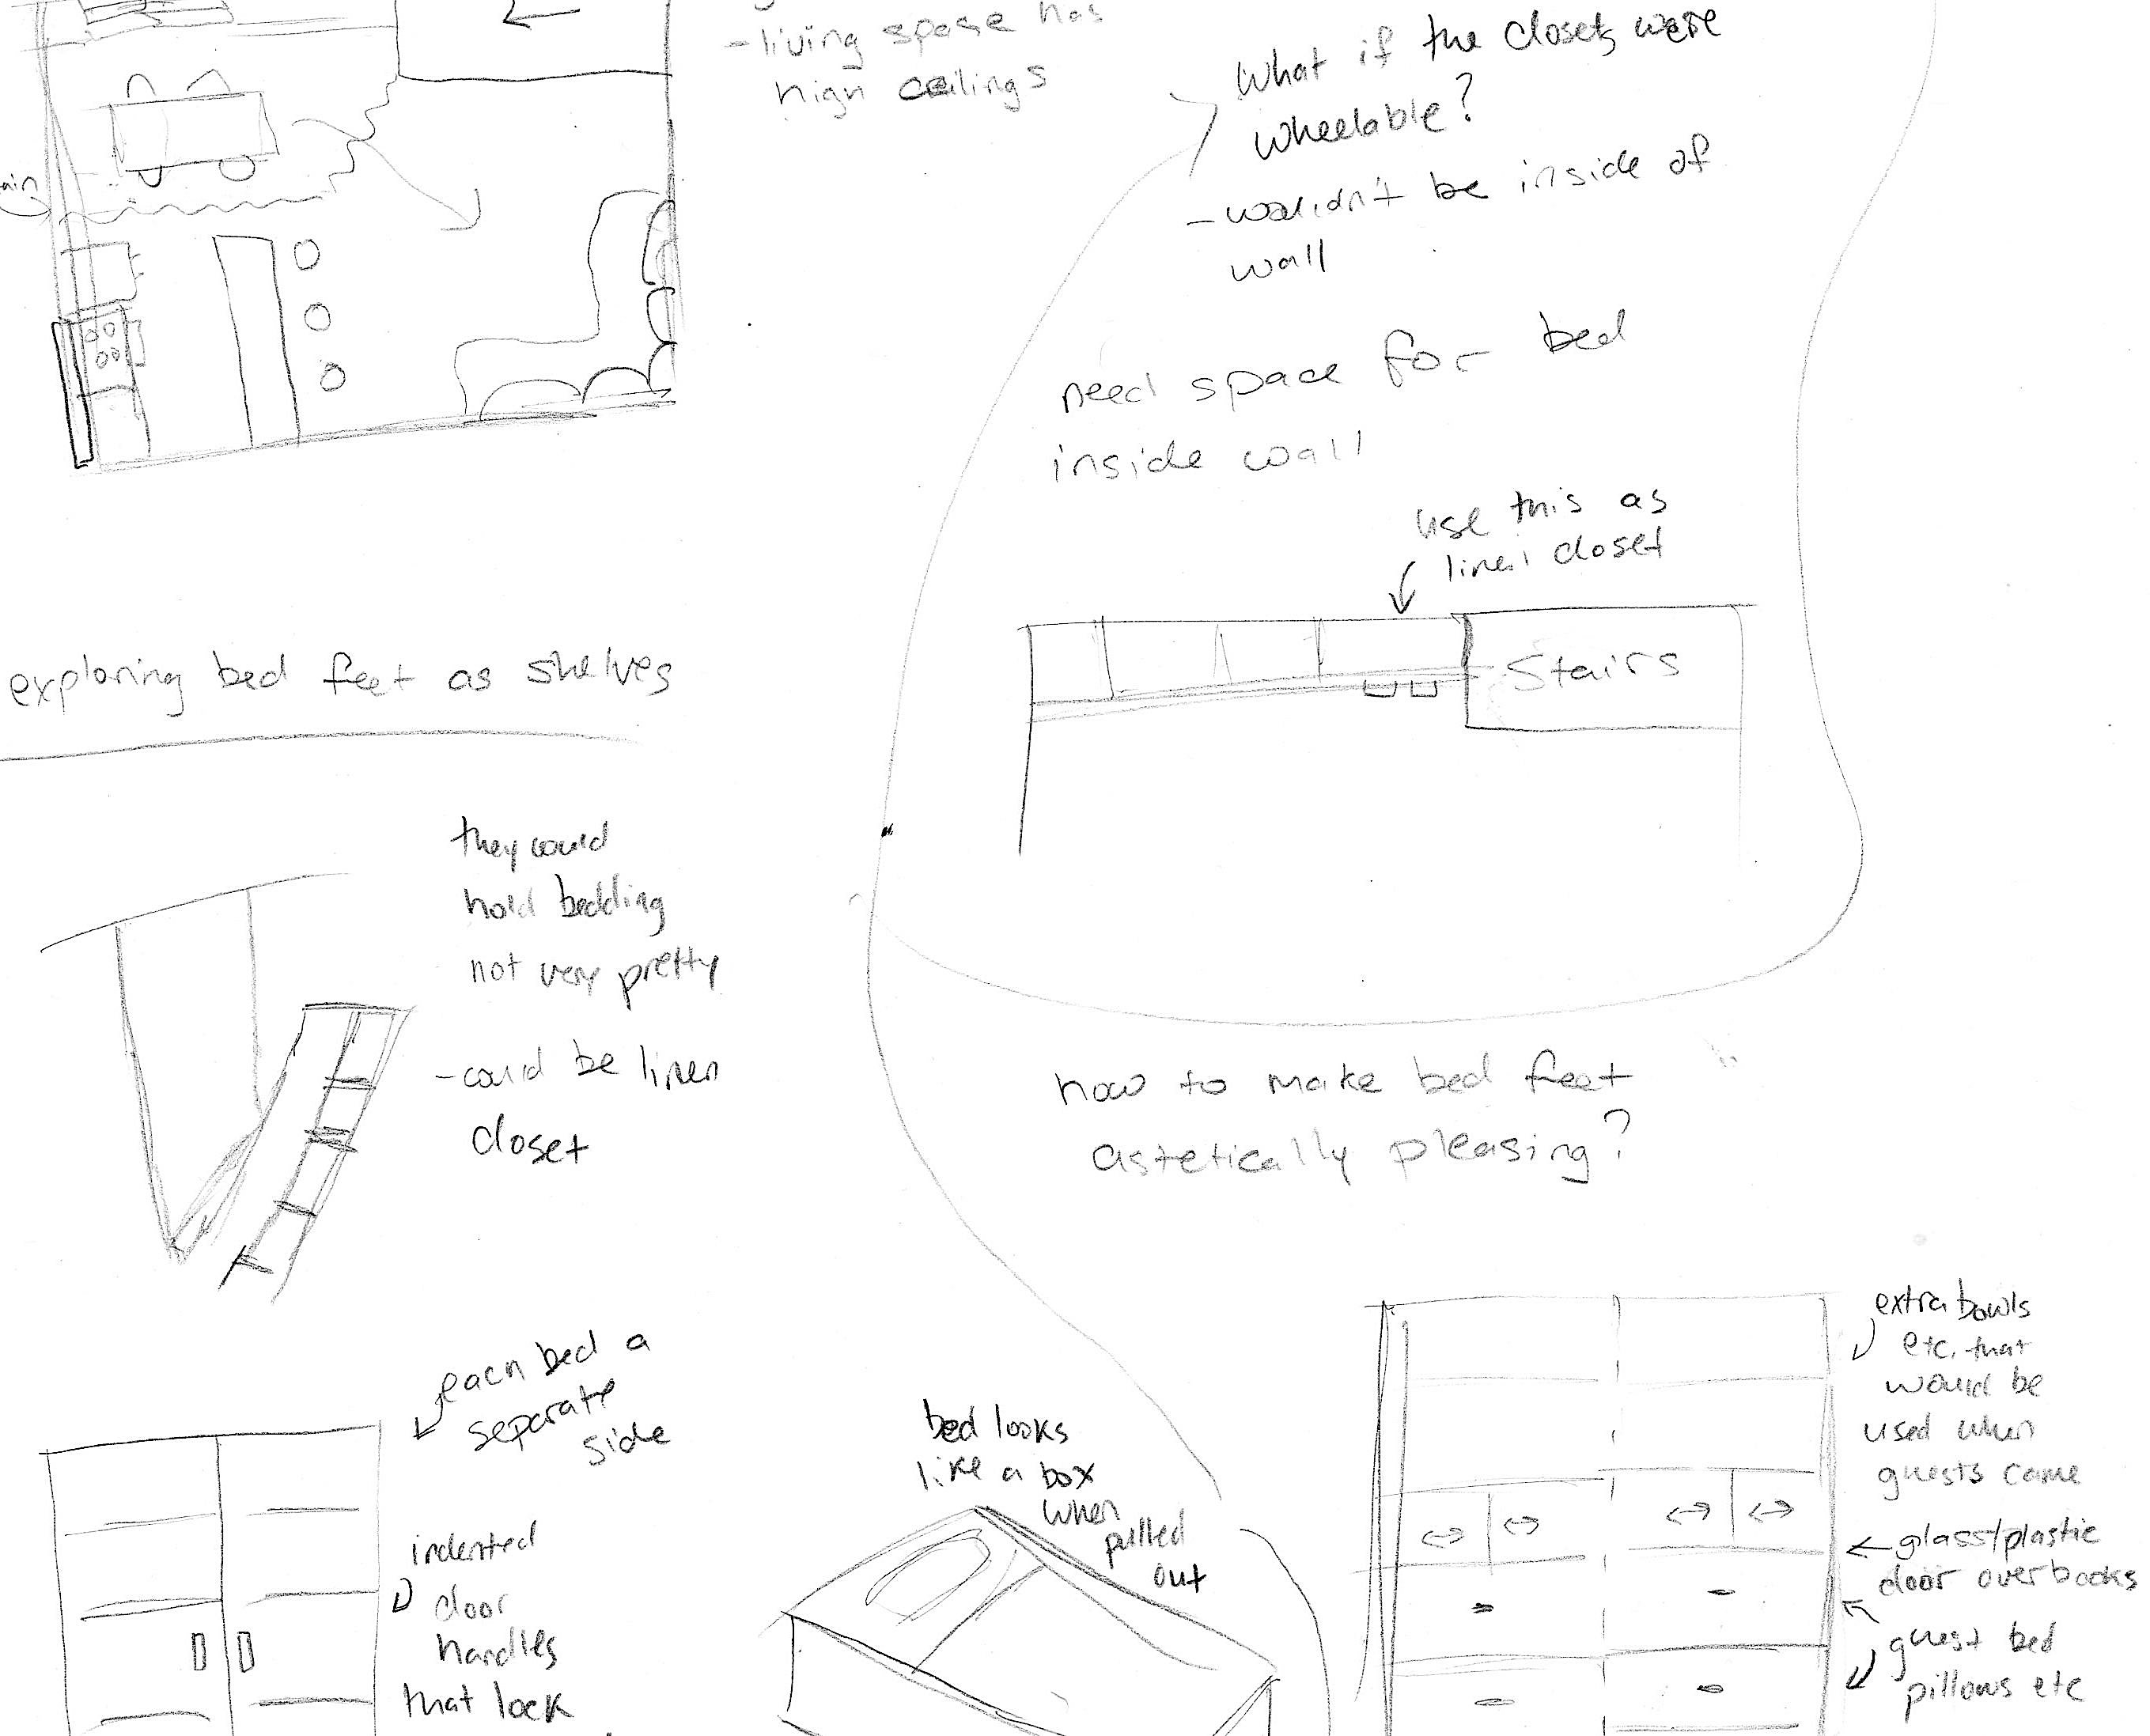 - living space has
high ceilings
What if the closets were
wheelable?
- wouldn't be inside of
wall
need space for bed
inside wall
use this as
linen closet
Stairs
exploring bed feet as shelves
they could
hold bedding
not very pretty
- could be linen
closet
how to make bed feet
astetically pleasing?
each bed a
separate
side
indented
door
handles
that lock
bed looks
like a box
when
pulled
out
extra bowls
etc. that
would be
used when
guests came
glass/plastic
door over books
guest bed
pillows etc